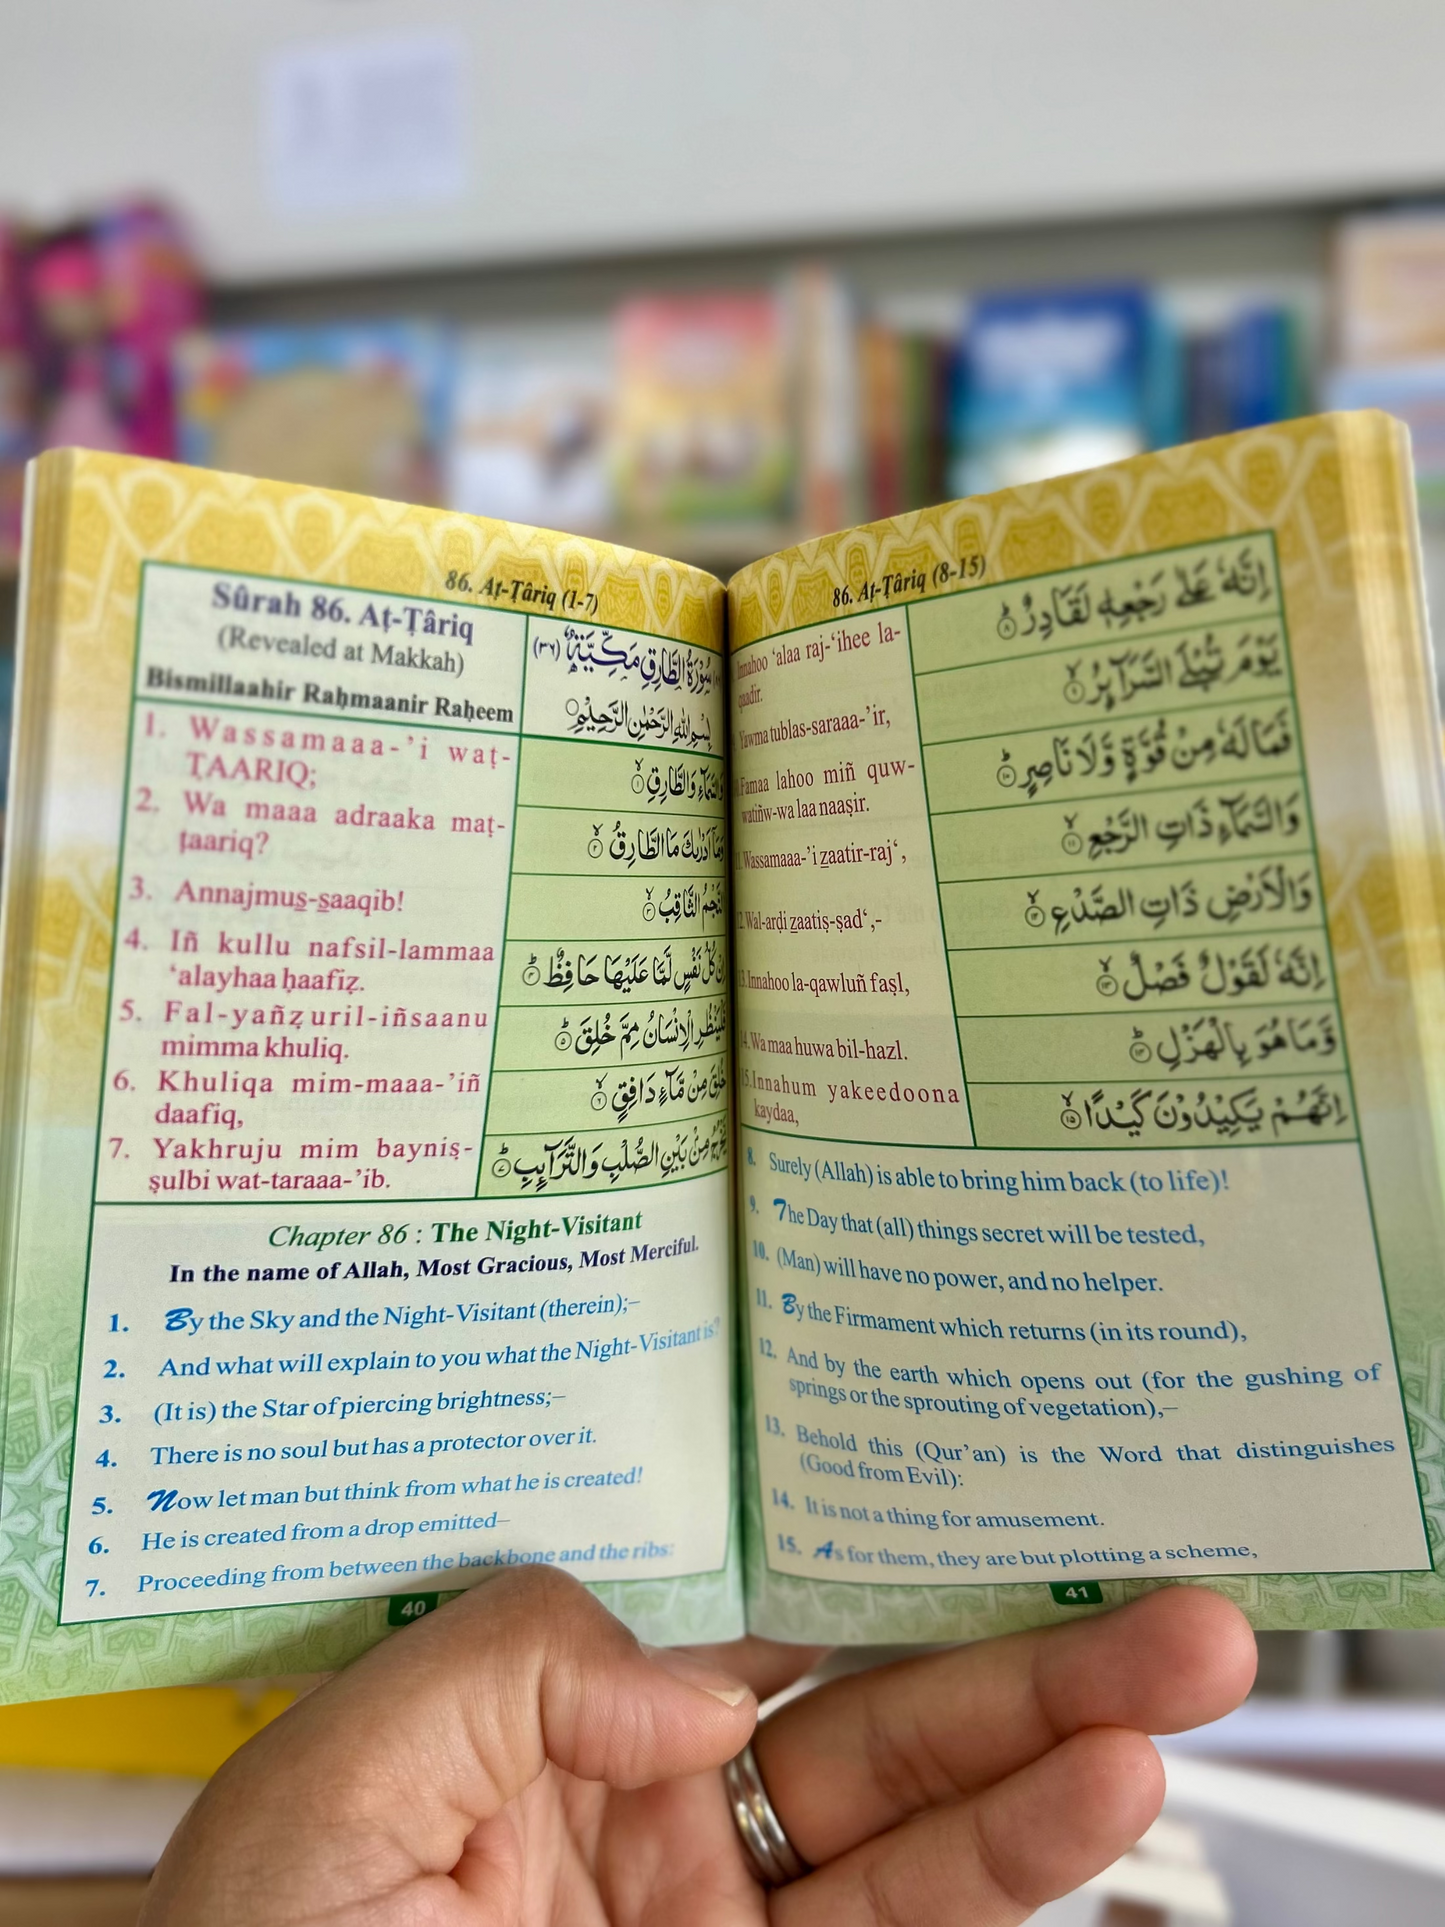 86. Aṭ-Ṭâriq (1-7)
Sûrah 86. Aṭ-Ṭâriq
(Revealed at Makkah)
Bismillaahir Raḥmaanir Raḥeem
سُوْرَةُ الطَّارِقِ مَكِّيَّةٌ (٣٦)
بِسْمِ اللهِ الرَّحْمٰنِ الرَّحِيْمِ
1. Wassamaaa-’i waṭ-
ṬAARIQ;
وَالسَّمَآءِ وَالطَّارِقِ ۙ ١
2. Wa maaa adraaka maṭ-
ṭaariq?
وَمَآ اَدْرٰىكَ مَا الطَّارِقُ ۙ ٢
3. Annajmus-saaqib!
النَّجْمُ الثَّاقِبُ ۙ ٣
4. Iñ kullu nafsil-lammaa
‘alayhaa ḥaafiẓ.
اِنْ كُلُّ نَفْسٍ لَّمَّا عَلَيْهَا حَافِظٌ ؕ ٤
5. Fal-yañẓuril-iñsaanu
mimma khuliq.
فَلْيَنْظُرِ الْاِنْسَانُ مِمَّ خُلِقَ ؕ ٥
6. Khuliqa mim-maaa-’iñ
daafiq,
خُلِقَ مِنْ مَّآءٍ دَافِقٍ ۙ ٦
7. Yakhruju mim bayniṣ-
ṣulbi wat-taraaa-’ib.
يَّخْرُجُ مِنْۢ بَيْنِ الصُّلْبِ وَالتَّرَآئِبِ ؕ ٧
Chapter 86 : The Night-Visitant
In the name of Allah, Most Gracious, Most Merciful.
1. By the Sky and the Night-Visitant (therein);–
2. And what will explain to you what the Night-Visitant is?
3. (It is) the Star of piercing brightness;–
4. There is no soul but has a protector over it.
5. Now let man but think from what he is created!
6. He is created from a drop emitted–
7. Proceeding from between the backbone and the ribs:
40
86. Aṭ-Ṭâriq (8-15)
Innahoo ‘alaa raj-‘ihee la-
qaadir.
اِنَّهٗ عَلٰى رَجْعِهٖ لَقَادِرٌ ؕ ٨
Yawma tublas-saraaa-’ir,
يَوْمَ تُبْلَى السَّرَآئِرُ ۙ ٩
Famaa lahoo miñ quw-
watiñw-wa laa naaṣir.
فَمَا لَهٗ مِنْ قُوَّةٍ وَّلَا نَاصِرٍ ؕ ١٠
Wassamaaa-’i zaatir-raj‘,
وَالسَّمَآءِ ذَاتِ الرَّجْعِ ۙ ١١
12. Wal-arḍi zaatiṣ-ṣad‘,-
وَالْاَرْضِ ذَاتِ الصَّدْعِ ۙ ١٢
13. Innahoo la-qawluñ faṣl,
اِنَّهٗ لَقَوْلٌ فَصْلٌ ۙ ١٣
14. Wa maa huwa bil-hazl.
وَّمَا هُوَ بِالْهَزْلِ ؕ ١٤
15. Innahum yakeedoona
kaydaa,
اِنَّهُمْ يَكِيْدُوْنَ كَيْدًا ۙ ١٥
8. Surely (Allah) is able to bring him back (to life)!
9. The Day that (all) things secret will be tested,
10. (Man) will have no power, and no helper.
11. By the Firmament which returns (in its round),
12. And by the earth which opens out (for the gushing of
springs or the sprouting of vegetation),–
13. Behold this (Qur’an) is the Word that distinguishes
(Good from Evil):
14. It is not a thing for amusement.
15. As for them, they are but plotting a scheme,
41